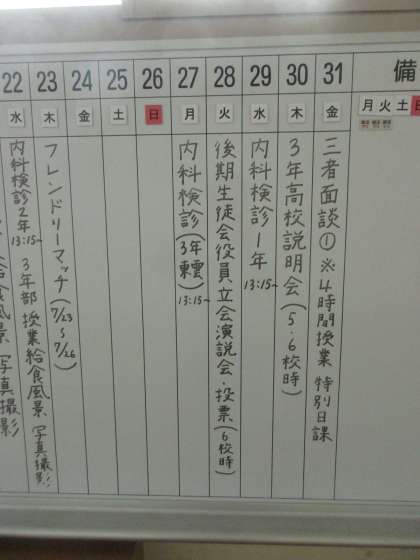 22 23 24 25 26 27 28 29 30 31 備
水 木 金 土 日 月 火 水 木 金 月 火 土
内科検診2年 13:15~
給食風景 写真撮影
3年部 授業給食風景 写真撮影
フレンドリーマッチ(7/23~7/26)
内科検診(3年東雲) 13:15~
後期生徒会役員立会演説会・投票(6校時)
内科検診1年 13:15~
3年高校説明会(5・6校時)
三者面談① ※4時間授業 特別日課